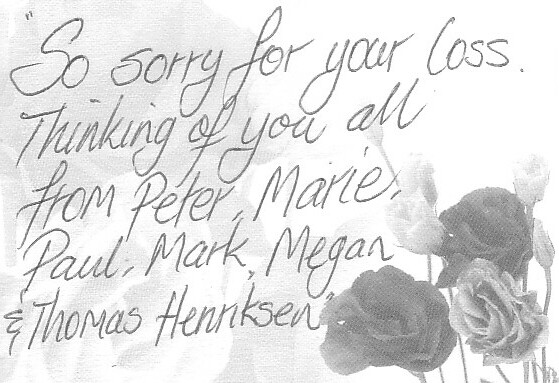 "So sorry for your loss.
Thinking of you all
from Peter, Marie,
Paul, Mark, Megan
& Thomas Henriksen"